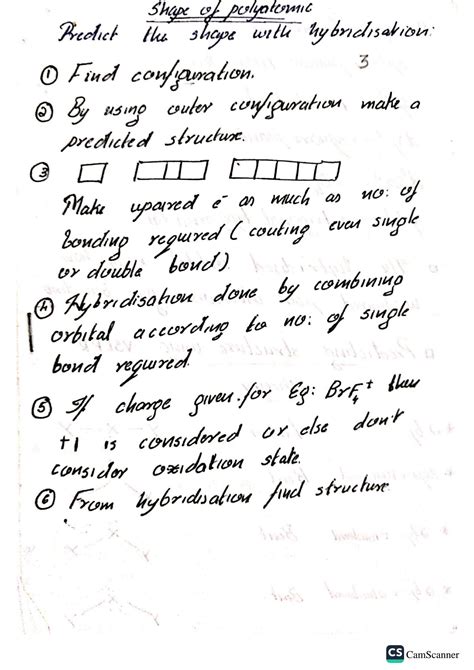 Shape of polyatomic
Predict the shape with hybridisation:
3
① Find configuration.
② By using outer configuration make a
predicted structure.
③
Make upaired e⁻ as much as no: of
bonding required (couting even single
or double bond)
④ Hybridisation done by combining
orbital according to no: of single
bond required.
⑤ If charge given for Eg: BrF₄⁺ then
+1 is considered or else don't
consider oxidation state.
⑥ From hybridisation find structure
CS CamScanner